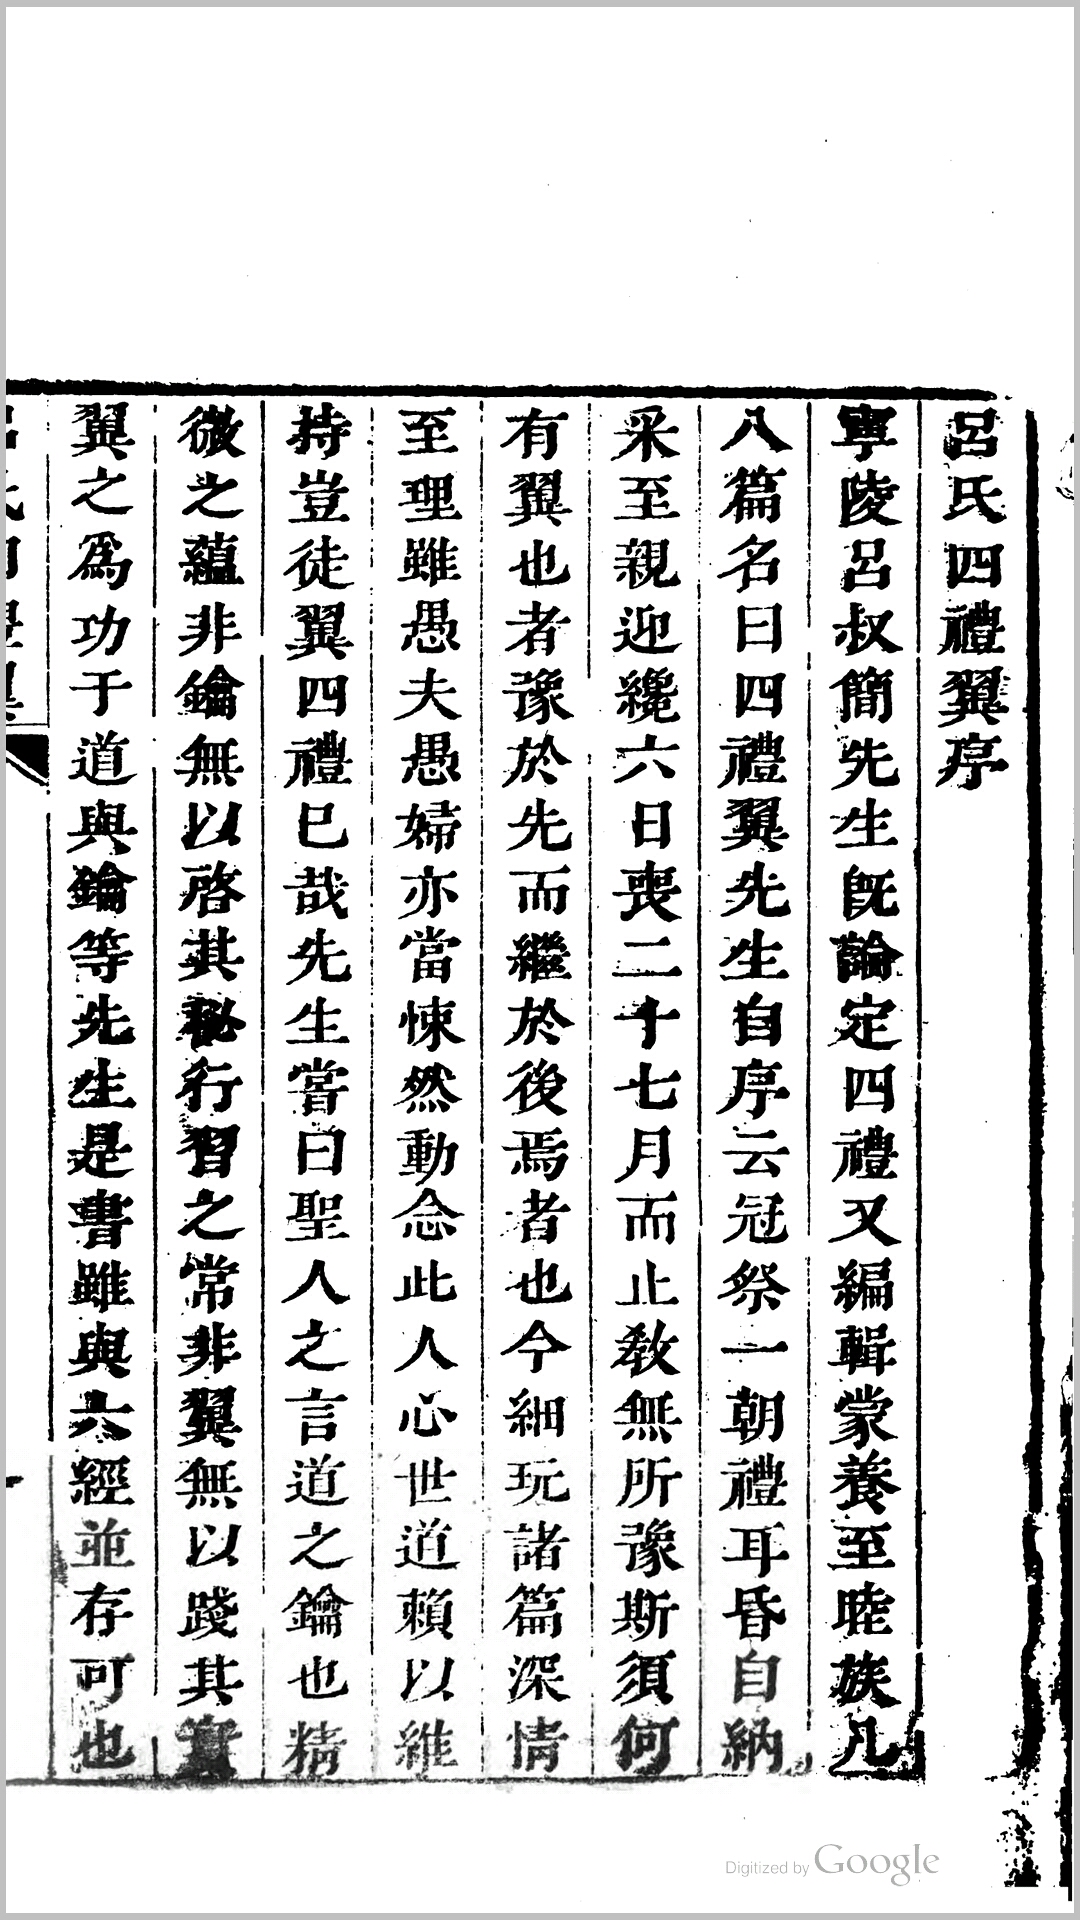 呂氏四禮翼序
寧陵呂叔簡先生旣論定四禮又編輯蒙養至睦族凡
八篇名曰四禮翼先生自序云冠祭一朝禮耳昏自納
采至親迎纔六日喪二十七月而止敎無所豫斯須何
有翼也者豫於先而繼於後焉者也今細玩諸篇深情
至理雖愚夫愚婦亦當悚然動念此人心世道賴以維
持豈徒翼四禮已哉先生嘗曰聖人之言道之鑰也精
微之蘊非鑰無以啓其秘行習之常非翼無以踐其實
翼之爲功于道與鑰等先生是書雖與六經並存可也
Digitized by Google